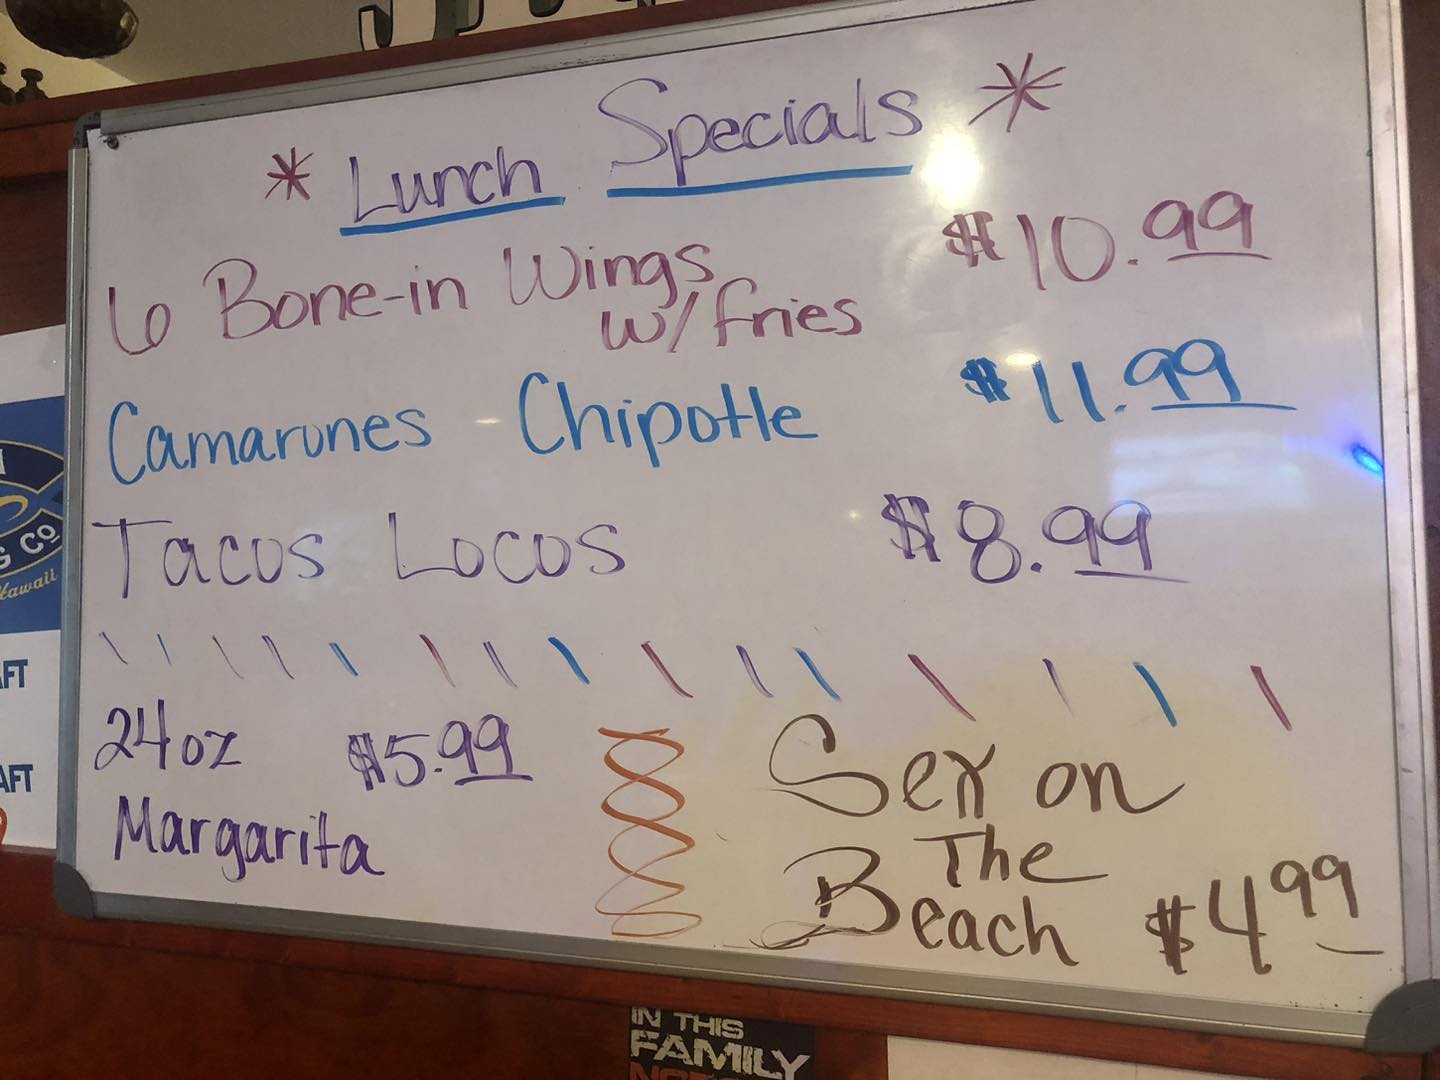 * Lunch Specials *
6 Bone-in Wings $10.99
w/fries
Camarones Chipotle $11.99
Tacos Locos $8.99
24oz $5.99
Margarita
Sex on
The
Beach $4.99
G Co
Hawaii
AFT
AFT
IN THIS
FAMILY